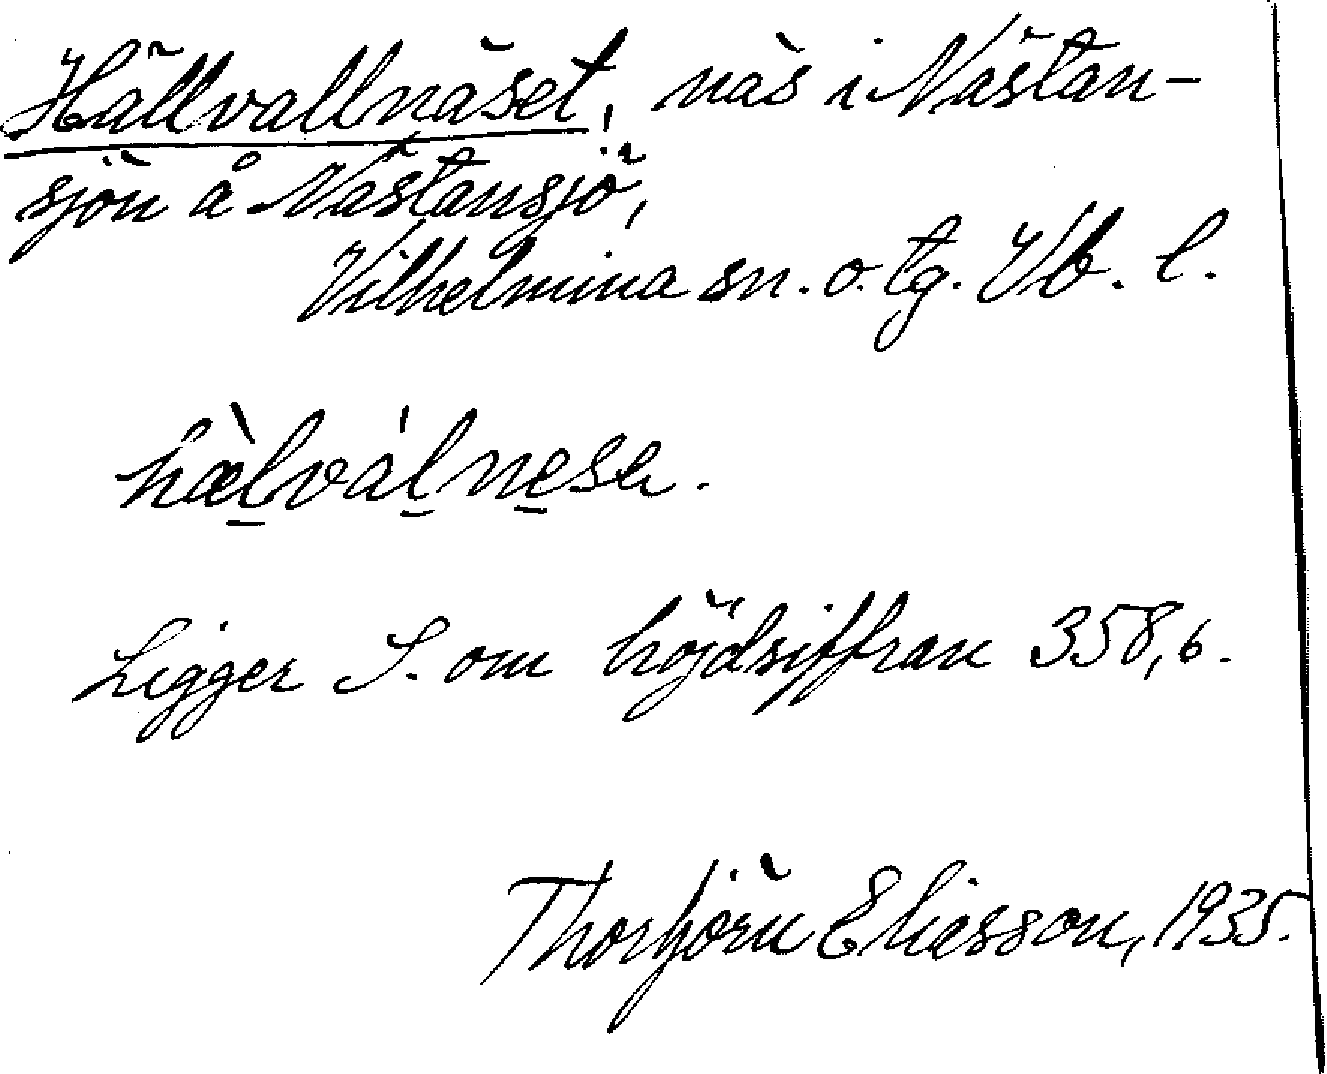 Hällvallnäset, näs i Nästan-
sjön å Nästansjö,
Vilhelmina sn. o. tg. Vb. l.
hæ̀lválnesa.
Ligger S. om höjdsiffran 358,6.
Thorbjörn Eliesson, 1935.